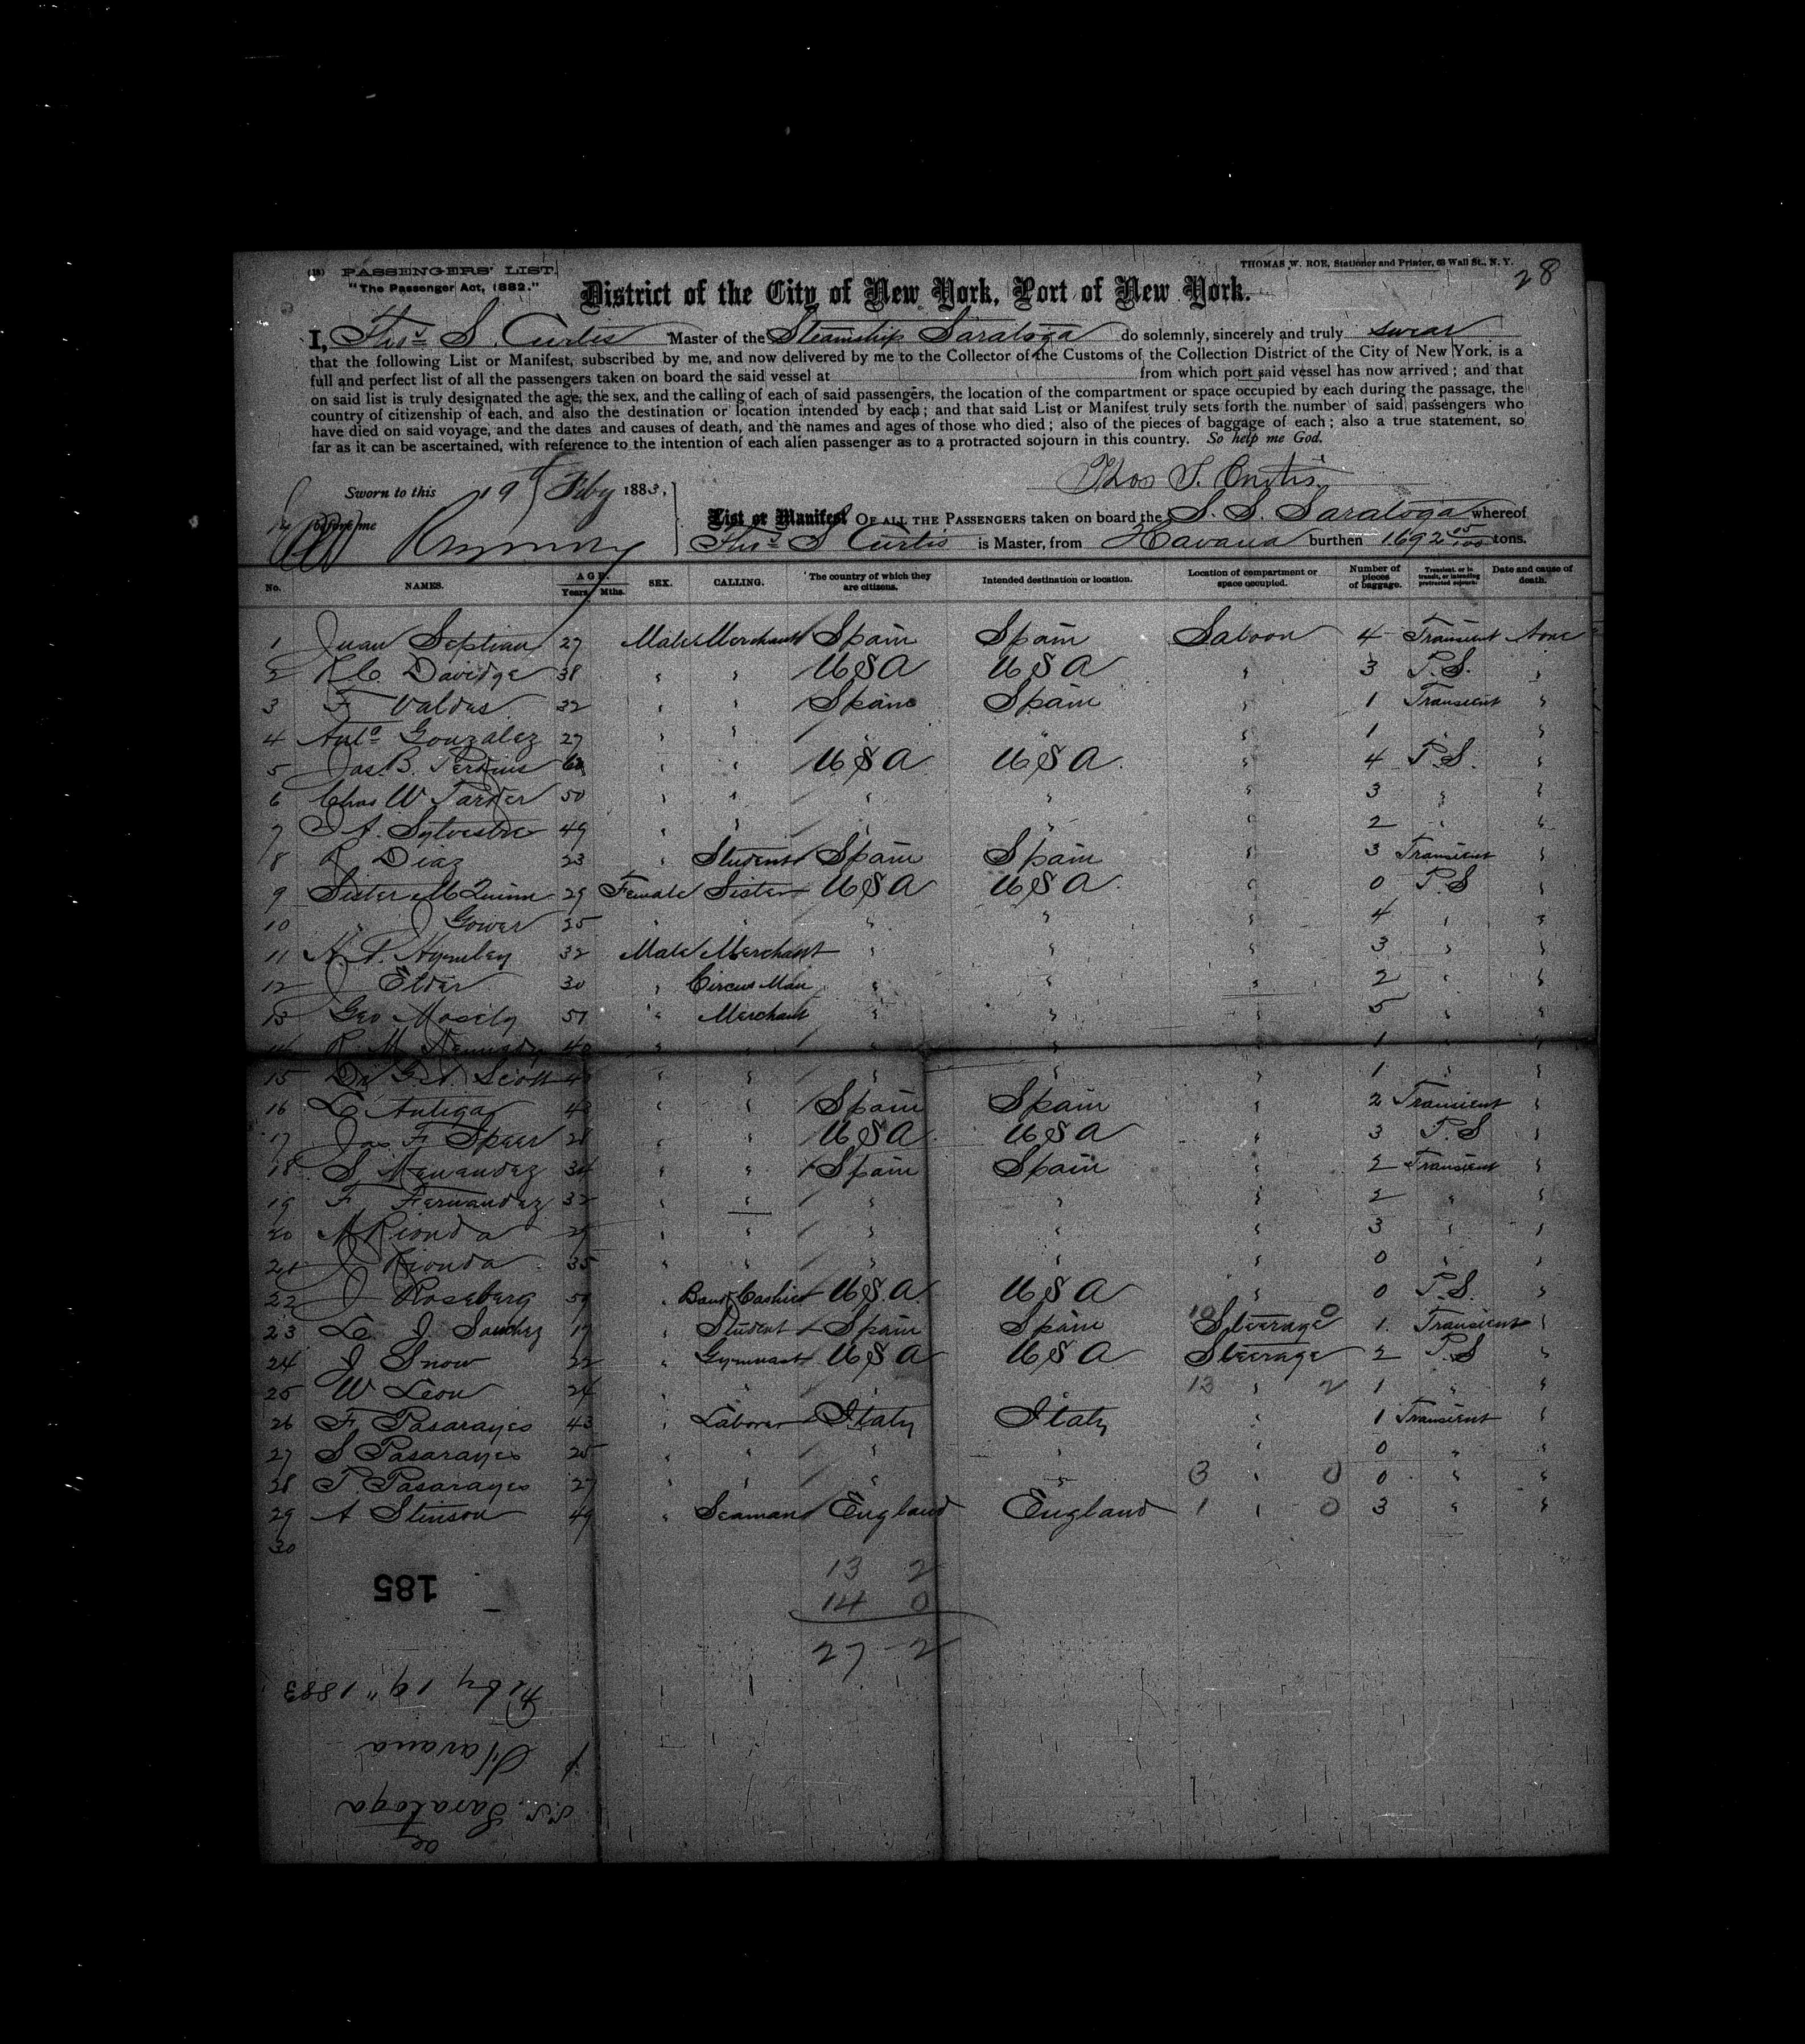 (18) PASSENGERS' LIST.
"The Passenger Act, 1882."
THOMAS W. ROE, Stationer and Printer, 63 Wall St., N. Y.
28
District of the City of New York, Port of New York.
I, Thos S. Curtis Master of the Steamship Saratoga do solemnly, sincerely and truly swear
that the following List or Manifest, subscribed by me, and now delivered by me to the Collector of the Customs of the Collection District of the City of New York, is a
full and perfect list of all the passengers taken on board the said vessel at from which port said vessel has now arrived; and that
on said list is truly designated the age, the sex, and the calling of each of said passengers, the location of the compartment or space occupied by each during the passage, the
country of citizenship of each, and also the destination or location intended by each; and that said List or Manifest truly sets forth the number of said passengers who
have died on said voyage, and the dates and causes of death, and the names and ages of those who died; also of the pieces of baggage of each; also a true statement, so
far as it can be ascertained, with reference to the intention of each alien passenger as to a protracted sojourn in this country. So help me God.
Thos S. Curtis
Sworn to this 19 Feby 1883,
before me
List or Manifest OF ALL THE PASSENGERS taken on board the S. S. Saratoga whereof
Thos S Curtis is Master, from Havana burthen 1692 05/100 tons.
No. NAMES. AGE. Years Mths. SEX. CALLING. The country of which they are citizens. Intended destination or location. Location of compartment or space occupied. Number of pieces of baggage. Transient, or in transit, or intending protracted sojourn. Date and cause of death.
1 Juan Septian 27 Male Merchant Spain Spain Saloon 4 Transient None
2 Davidge 38 " " USA USA " 3 P.S. "
3 F Valdes 32 " " Spain Spain " 1 Transient "
4 Anto Gonzalez 27 " " " " " 1 " "
5 Jas. B. Perkins " " USA USA " 4 P.S. "
6 Chas W Parker 50 " " " " " 3 " "
7 A. Sylvestre 49 " " " " " 2 " "
8 R Diaz 23 " Student Spain Spain " 3 Transient "
9 Sister McQuinn 29 Female Sister USA USA " 0 P.S "
10 " Gower 25 " " " " " 4 " "
11 Hymley 32 Male Merchant " " " 3 " "
12 J Elder 30 " Circus Man " " " 2 " "
13 Geo Mosely 57 " Merchant " " " 5 " "
14 R. M. Kennedy 40 " " " " " 1 " "
15 Dr Scott " " " " " 1 " "
16 L Antiga " " Spain Spain " 2 Transient "
17 Jas F Speer 28 " " USA USA " 3 P.S "
18 S Menandez 34 " " Spain Spain " 2 Transient "
19 F Fernandez 32 " " " " " 2 " "
20 M Rionda 29 " " " " " 3 " "
21 J Rionda 35 " " " " " 0 " "
22 J Roseberg " Bank Cashier USA USA " 0 P.S. "
23 L. J Sanchez 19 " Student Spain Spain 10 Steerage 0 1 Transient "
24 J Snow 22 " Gymnast USA USA Steerage 2 P.S "
25 W Leon 24 " " " " 13 " 2 1 " "
26 F Pasarayes 43 " Laborer Italy Italy " 1 Transient "
27 S Pasarayes 25 " " " " " 0 " "
28 P. Pasarayes 27 " " " " 3 " 0 0 " "
29 A Stinson 49 " Seaman England England 1 " 0 3 " "
30
13 2
14 0
27 2
185
Feby 19" 1883
Havana
S.S. Saratoga